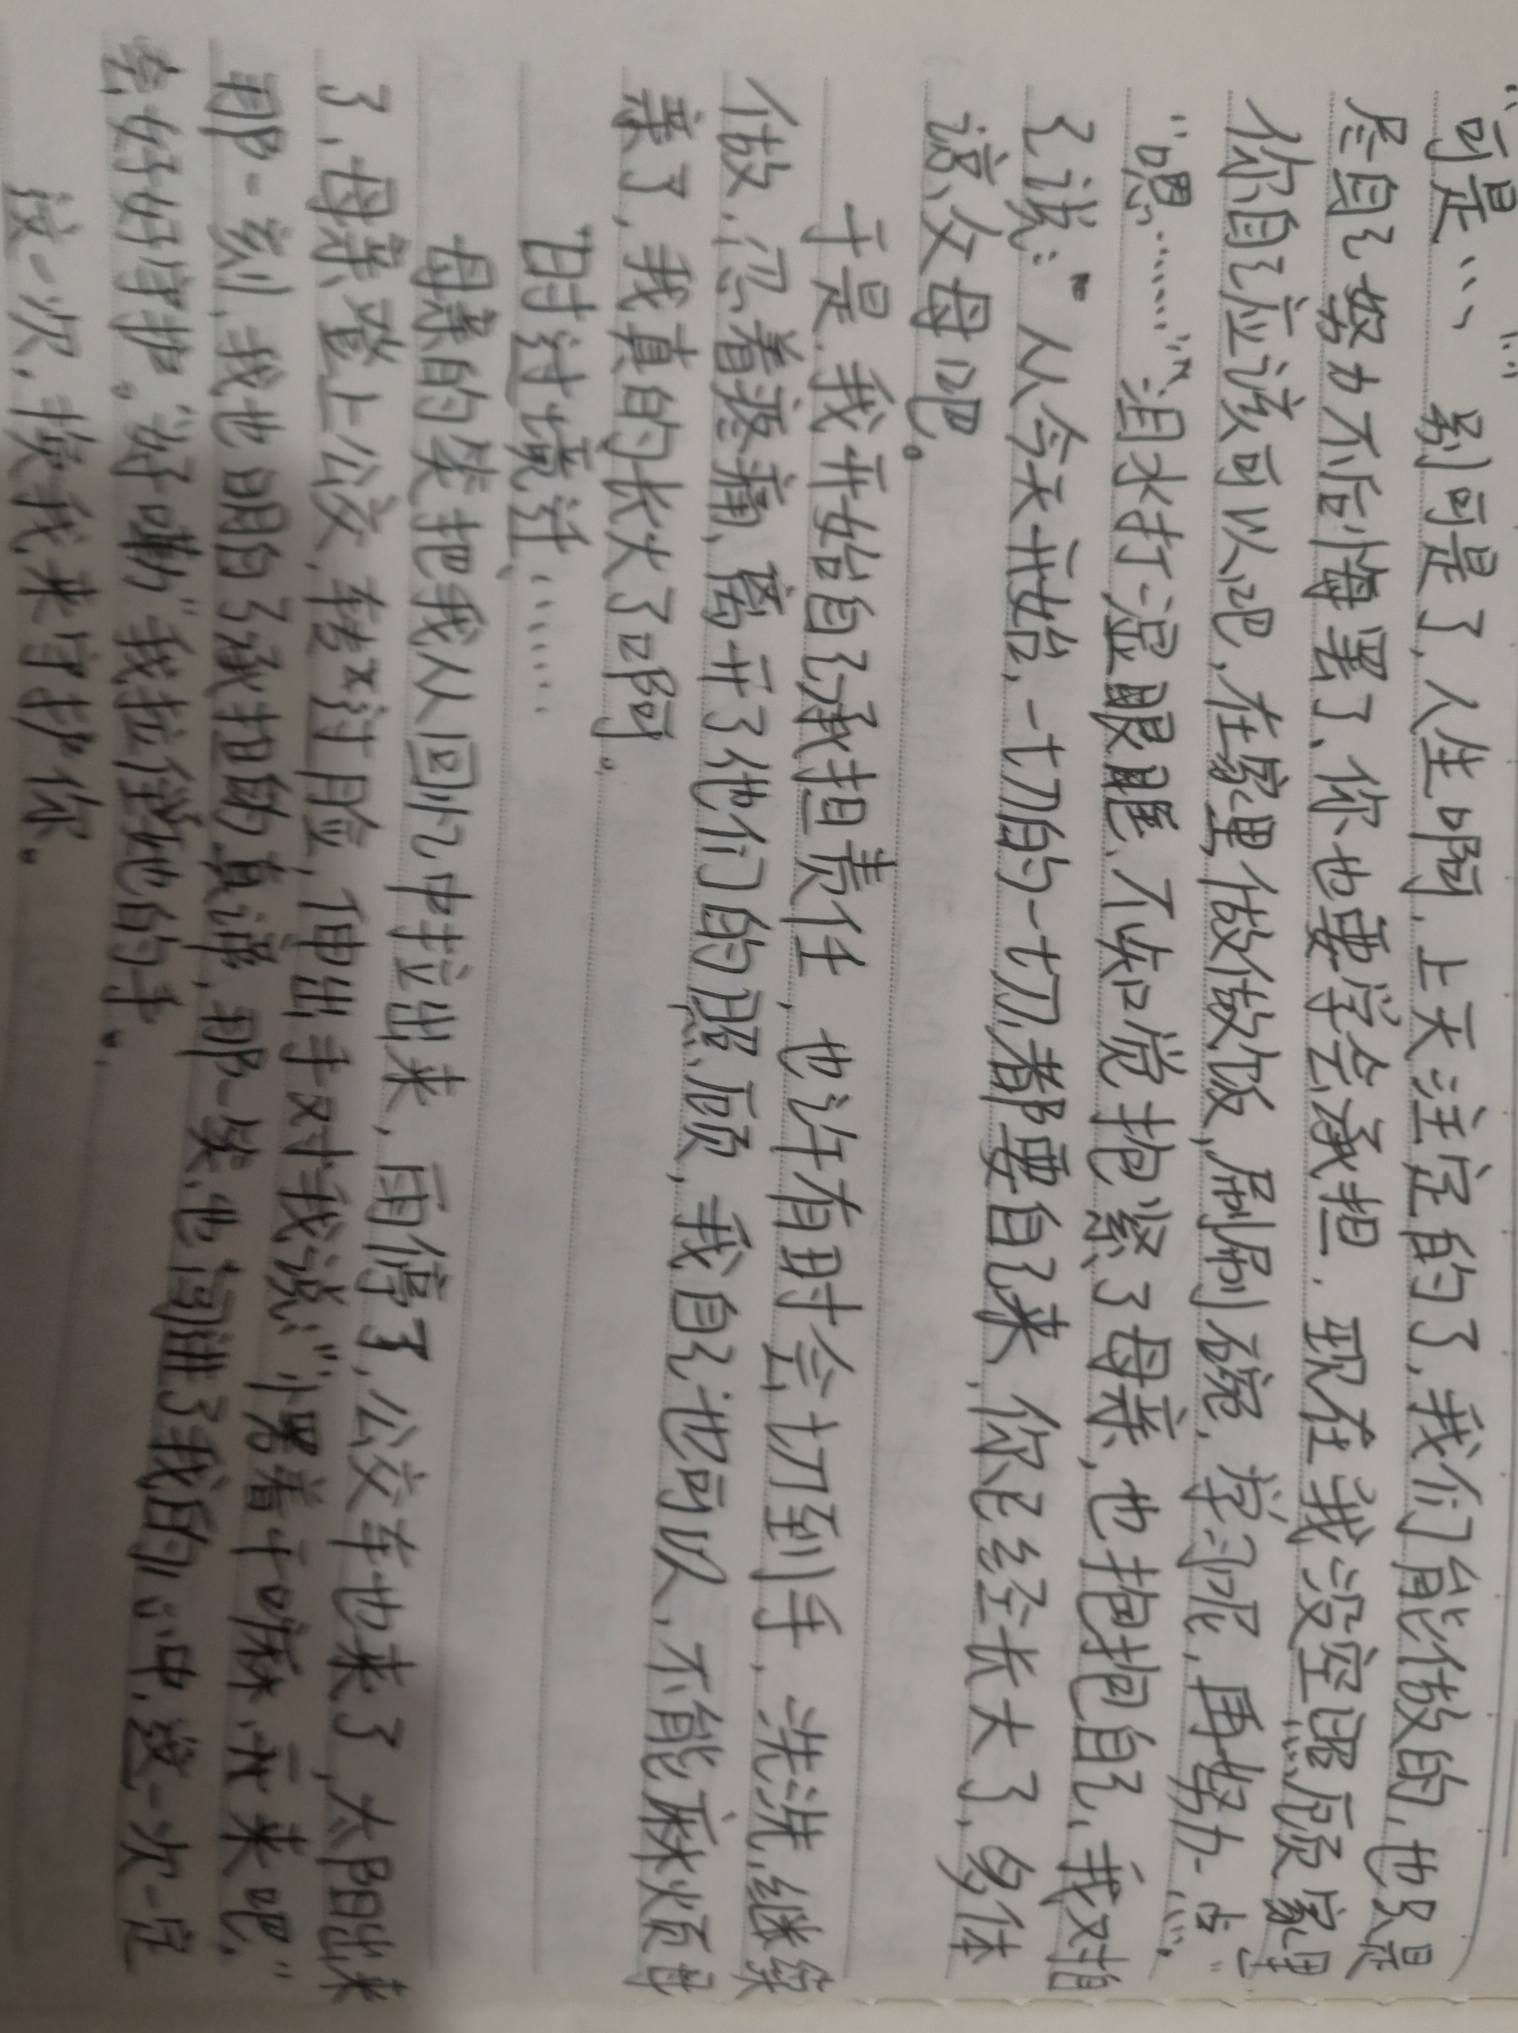 “可是…” 别可是了，人生啊，上天注定的了，我们能做的，也只是
尽自己努力不后悔罢了，你也要学会承担，现在我没空照顾家里
你自己应该可以吧，在家里做做饭，刷刷碗，学习呢，再努力一点。”
“嗯……”泪水打湿眼眶，不知觉抱紧了母亲，也抱抱自己，我对自
己说：“从今天开始，一切的一切，都要自己来，你已经长大了，多体
谅父母吧。
于是，我开始自己承担责任，也许有时会切到手，洗洗，继续
做，忍着疼痛，离开了他们的照顾，我自己也可以，不能麻烦母
亲了，我真的长大了啊。
时过境迁……
母亲的笑把我从回忆中拉出来，雨停了，公交车也来了，太阳出来
了，母亲登上公交，转过脸，伸出手对我说：“小 着干嘛，来吧，”
那一刻，我也明白了承担的真谛，那一笑，也闯进了我的心中，这一次一定
会好好守护。“好嘞”我拉住她的手。
这一次，换我来守护你。